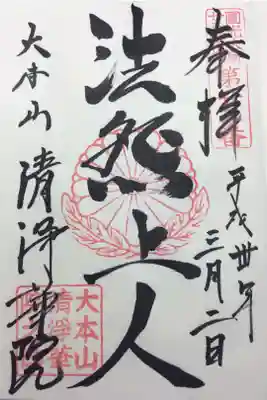 奉拝
平成丗年
三月二日
法然上人
大本山
清浄華院
大本山
清浄華